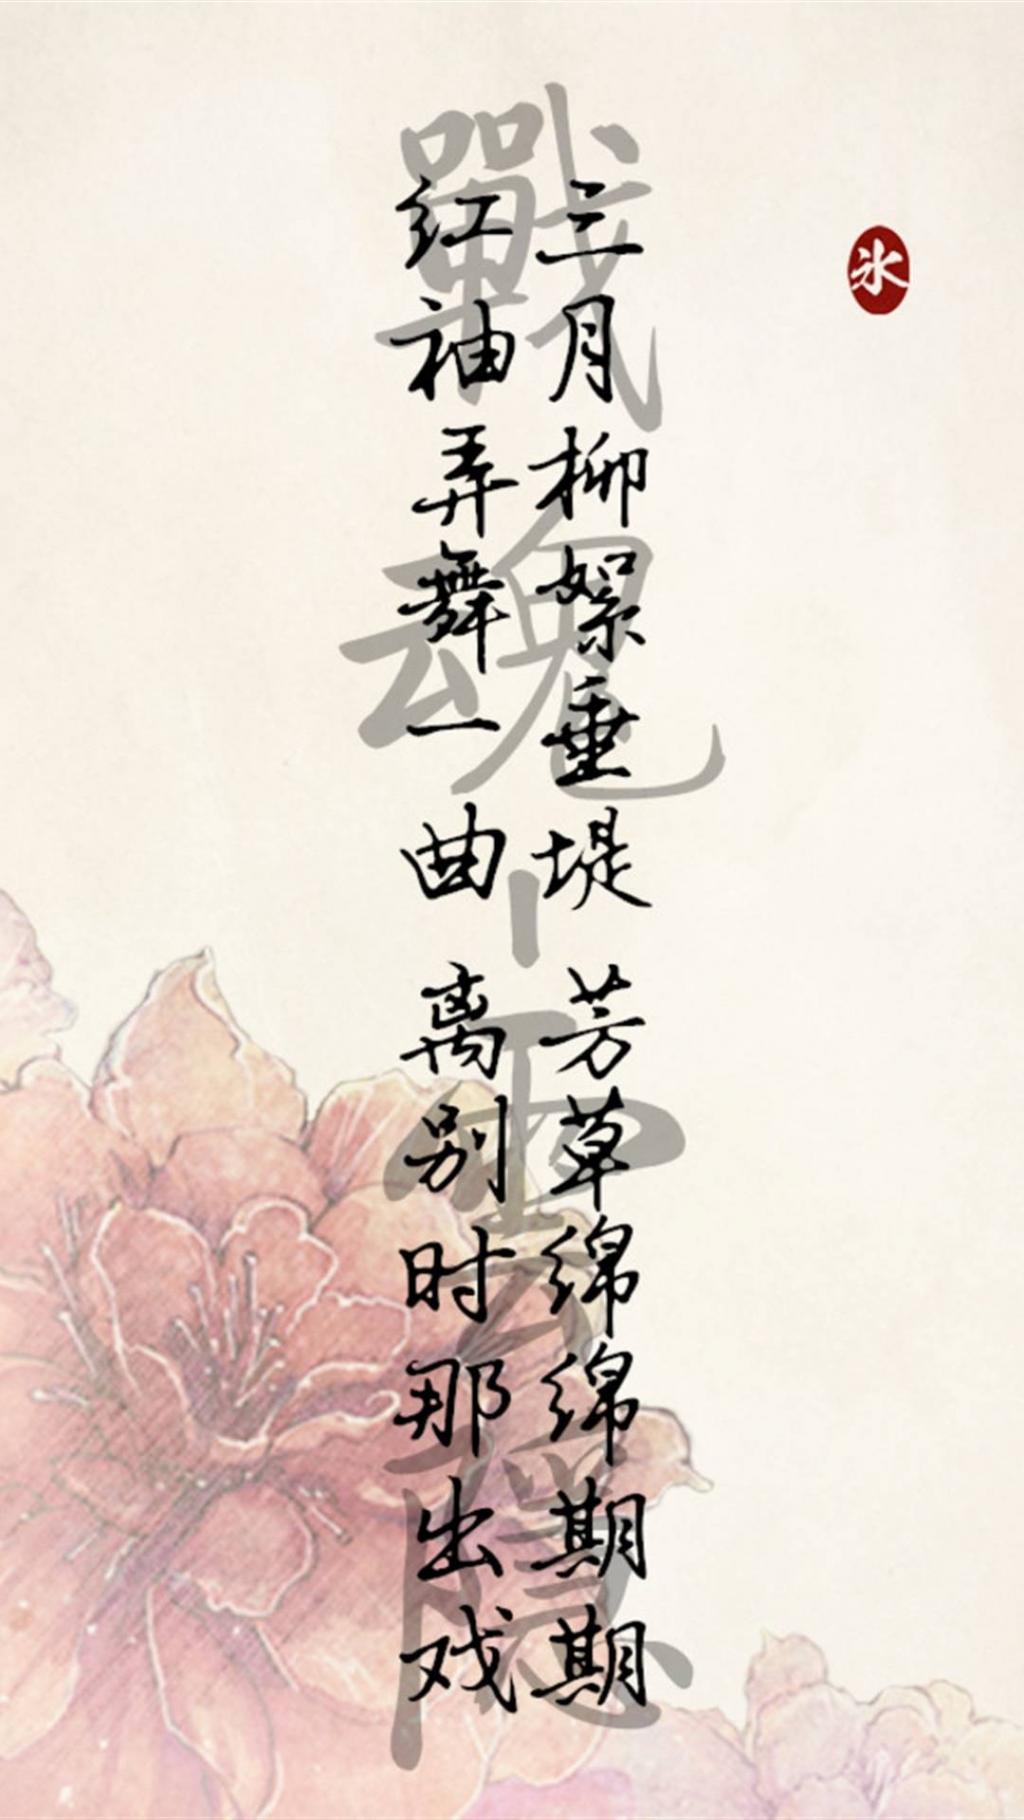 三月柳絮垂堤 芳草绵绵期期
红袖弄舞一曲 离别时那出戏
戰魂-雲隱
氷